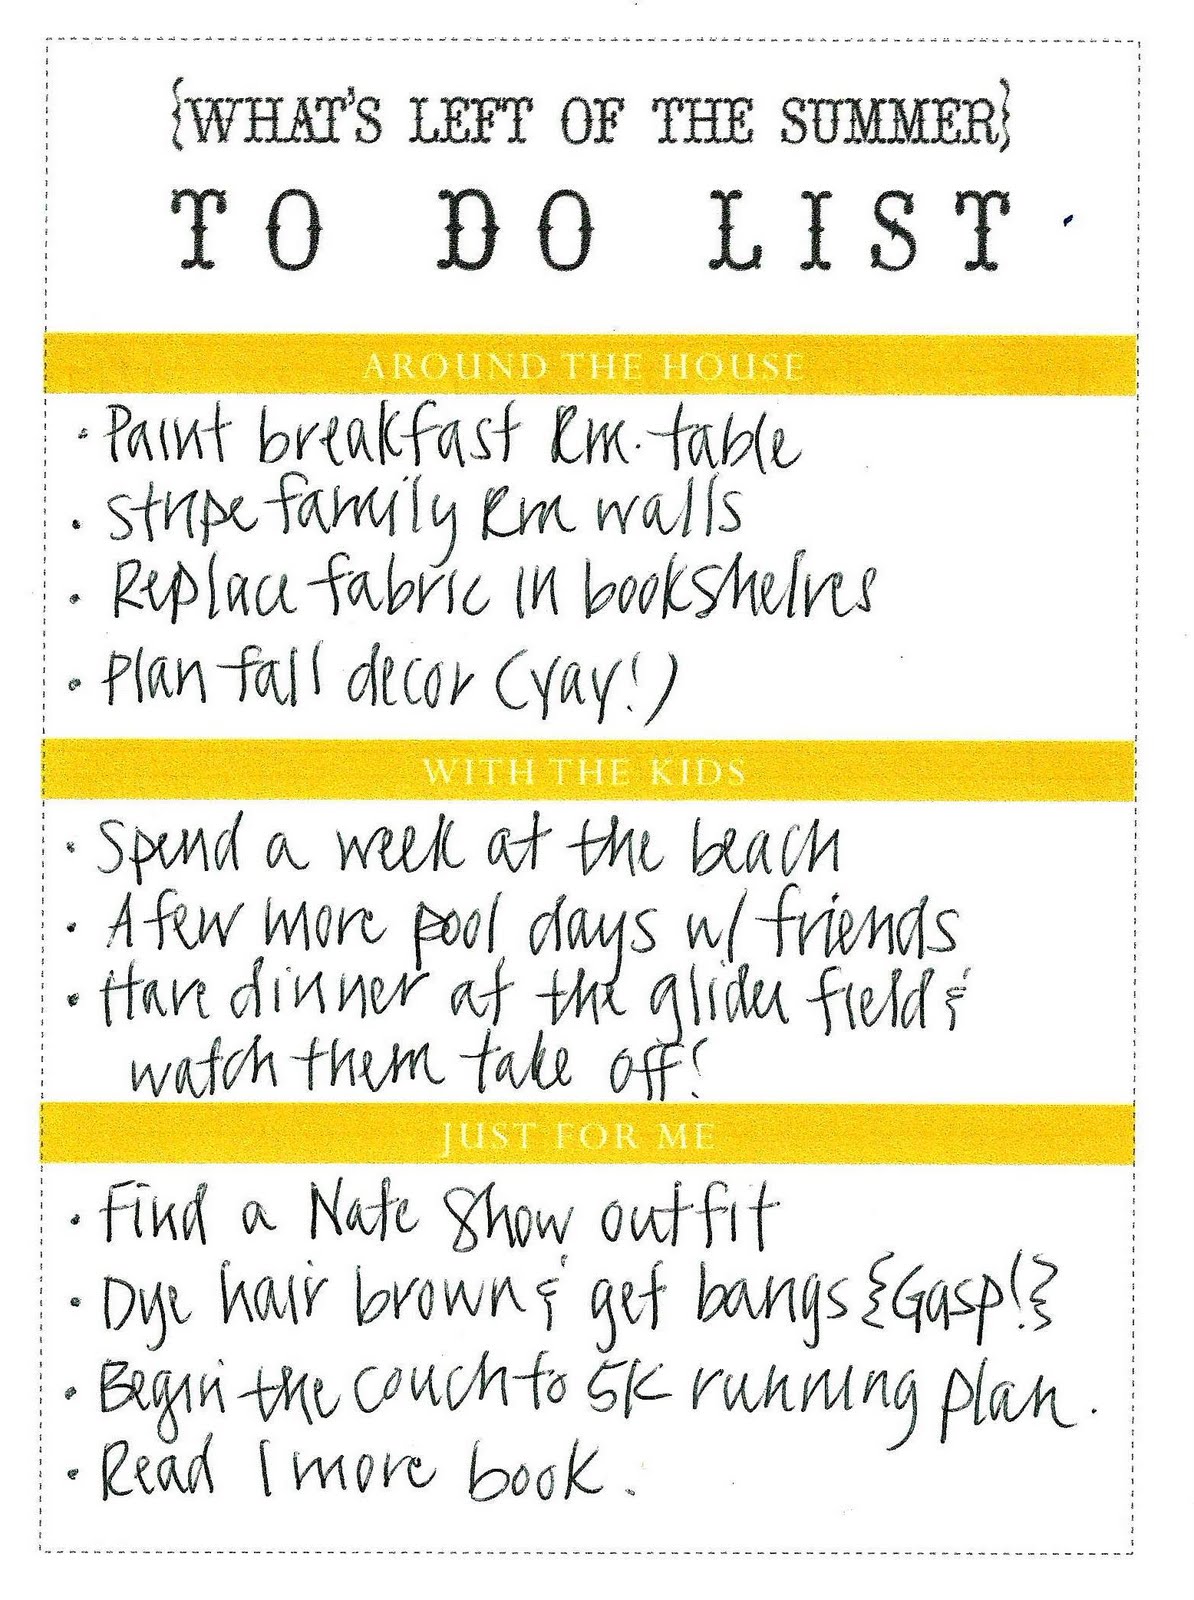 {WHAT'S LEFT OF THE SUMMER}
TO DO LIST
AROUND THE HOUSE
· Paint breakfast Rm. table
· Stripe family Rm walls
· Replace fabric in bookshelves
· Plan fall decor (yay!)
WITH THE KIDS
· Spend a week at the beach
· A few more pool days w/ friends
· Have dinner at the glider field &
watch them take off!
JUST FOR ME
· Find a Nate Show outfit
· Dye hair brown & get bangs {Gasp!}
· Begin the couch to 5K running plan.
· Read 1 more book.